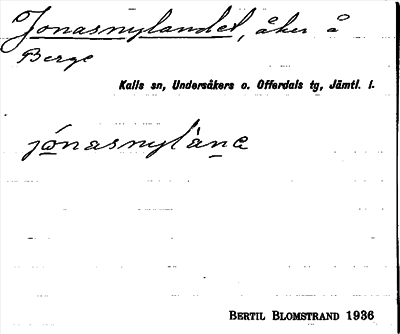 Jonasnylandet, åker å
Berge
Kalls sn, Undersåkers o. Offerdals tg, Jämtl. l.
jónasnylànɐ
BERTIL BLOMSTRAND 1936